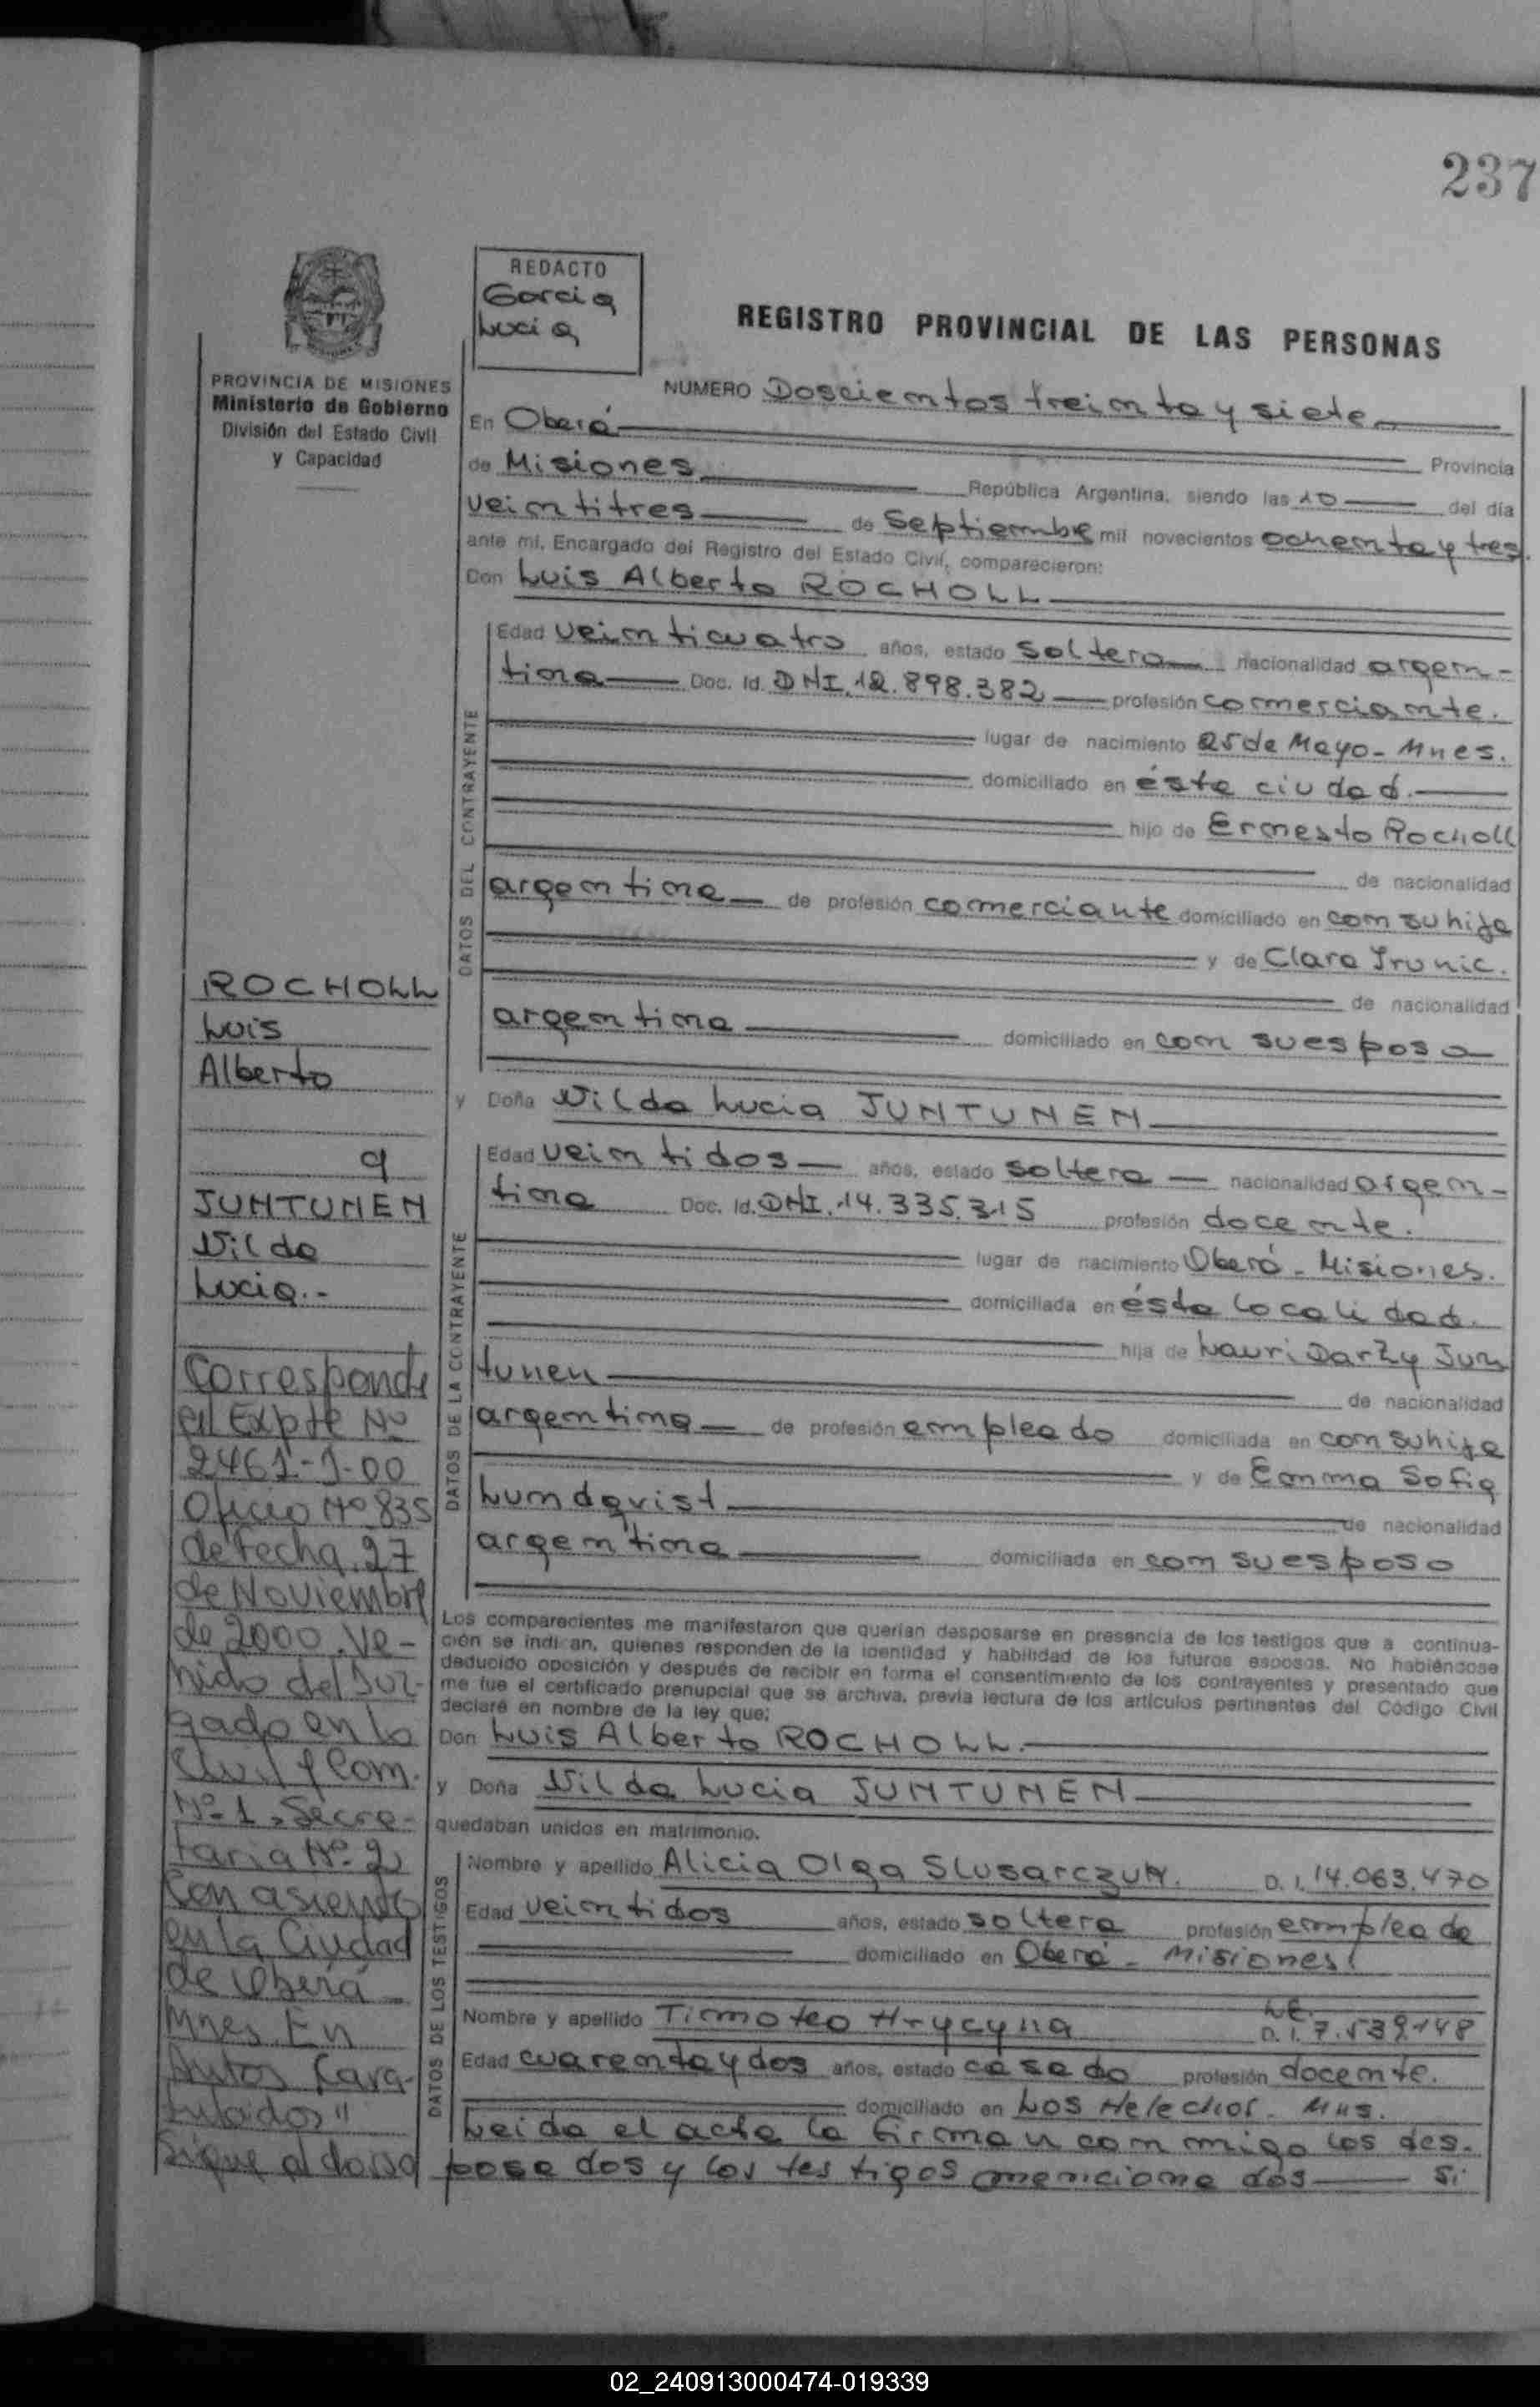 237
REDACTO
Garcia
Lucia
REGISTRO PROVINCIAL DE LAS PERSONAS
PROVINCIA DE MISIONES
Ministerio de Gobierno
División del Estado Civil
y Capacidad
NUMERO Doscientos treinta y siete
En Oberá
Provincia
de Misiones República Argentina, siendo las 10 del día
veintitres de Septiembre mil novecientos ochenta y tres.
ante mi, Encargado del Registro del Estado Civil, comparecieron:
Don Luis Alberto ROCHOLL
DATOS DEL CONTRAYENTE
Edad veinticuatro años, estado soltero nacionalidad argen-
tina Doc. Id. DNI.12.898.382 profesión comerciante.
lugar de nacimiento 25 de Mayo - Mnes.
domiciliado en ésta ciudad.
hijo de Ernesto Rocholl
de nacionalidad
argentina de profesión comerciante domiciliado en con su hijo
y de Clara
de nacionalidad
argentina domiciliado en con su esposo
y Doña Nilda Lucia JUNTUNEN
DATOS DE LA CONTRAYENTE
Edad veintidos años, estado soltera nacionalidad argen-
tina Doc. Id. DNI.14.335.315 profesión docente.
lugar de nacimiento Oberá - Misiones.
domiciliada en ésta localidad.
hija de Lauri Darzy Jun
tunen
de nacionalidad
argentina de profesión empleado domiciliada en con su hija
y de Emma Sofia
Lundqvist
de nacionalidad
argentina domiciliada en con su esposo
Los comparecientes me manifestaron que querían desposarse en presencia de los testigos que a continua-
ción se indican, quienes responden de la identidad y habilidad de los futuros esposos. No habiéndose
deducido oposición y después de recibir en forma el consentimiento de los contrayentes y presentado que
me fue el certificado prenupcial que se archiva, previa lectura de los artículos pertinentes del Código Civil
declaré en nombre de la ley que:
Don Luis Alberto ROCHOLL.
y Doña Nilda Lucia JUNTUNEN
quedaban unidos en matrimonio.
DATOS DE LOS TESTIGOS
Nombre y apellido Alicia Olga SLUSARCZUK. D. I. 14.063.470
Edad veintidos años, estado soltera profesión empleada
domiciliado en Oberá - Misiones.
Nombre y apellido Timoteo Hrycyna LE. D. I. 7.539.148
Edad cuarenta y dos años, estado casado profesión docente.
domiciliado en Los Helechos - Mns.
Leida el acta la firman conmigo los des-
posados y los testigos mencionados
ROCHOLL
Luis
Alberto
JUNTUNEN
Nilda
Lucia.-
Corresponde
al Expte Nº
2461-J-00
Oficio Nº 835
de fecha 27
de Noviembre
de 2000. Ve-
nido del Juz-
gado en lo
Civil y Com.
Nº 1, Secre-
taria Nº 2
con asiento
en la Ciudad
de Oberá
Mnes. En
Autos Cara-
tulados"
Sigue al dorso
02_240913000474-019339